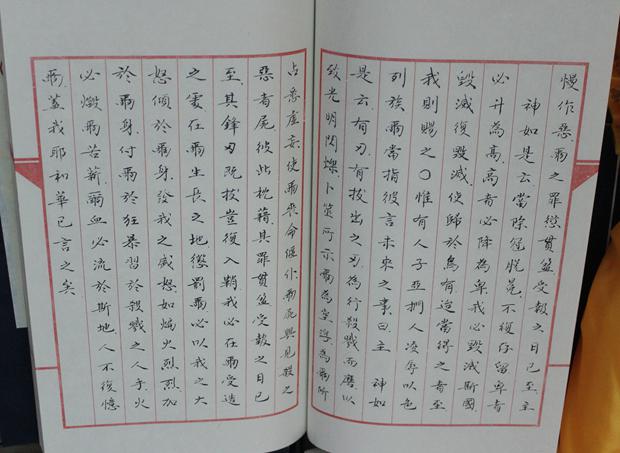 慢作惡爾之罪愆貫盈受報之日已至主
神如是云當除冠脫冕不復存留卑者
必升為高高者必降為卑我必毀滅斯國
毀滅復毀滅使歸於烏有迨當得之者至
我則賜之〇惟有人子亞捫人凌辱以色
列族爾當指彼言未來之事曰主 神如
是云有刃有拔出之刃為行殺戮而磨以
致光明閃爍卜筮所示爾為虛浮為爾所
占悉虛妄使爾喪命偃仆爾屍與見殺之
惡者屍彼此枕藉其罪貫盈受報之日已
至其鋒刃既拔豈復入鞘我必在爾受造
之處在爾生長之地懲罰爾必以我之大
怒傾於爾身發我之威怒如焔火烈烈加
於爾身付爾於狂暴習於殺戮之人手火
必燬爾若薪爾血必流於斯地人不復憶
爾蓋我耶和華已言之矣